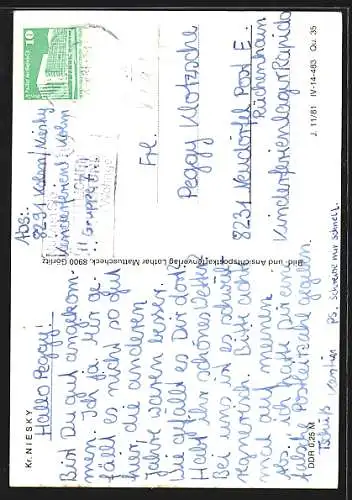 Kr. NIESKY
Hallo Peggy!
Bist Du gut angekom-
men. Ich ja. Mir ge-
fällt es nicht so gut
hier, die anderen
Jahre waren besser.
Wie gefällt es Dir dort?
Habt ihr schönes Wetter?
Bei uns ist es schwül
regnerisch. Bitte achte
mal auf meinen
Abs. ich hatte dir eine
falsche Postleitzahl gegeben.
Tschüß
Ps. schreibe mir schnell.
DDR 0,25 M
Bild- und Ansichtspostkartenverlag Lothar Mattuscheck, 8900 Görlitz
Abs.:
8231
Gruppe
10
Frl.
Peggy Klotzsche
8231 Neudörfel Post E
Kinderferienlager Rapido
J. 11/81 IV-14-483 Qu. 35